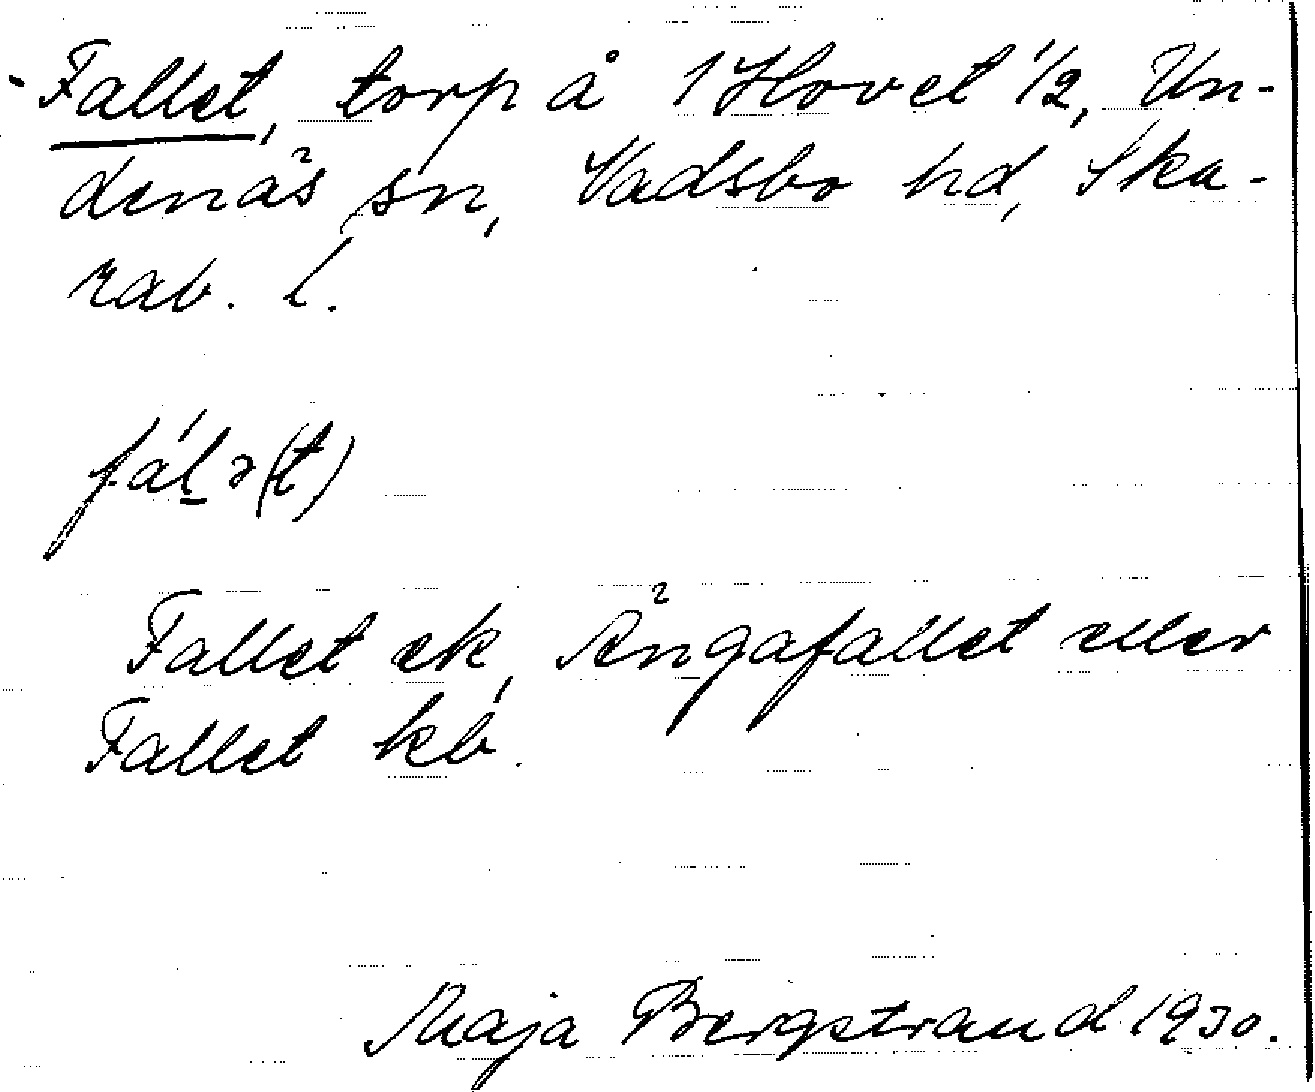 Fallet, torp å 1 Hovet 1/2, Un-
denäs sn, Vadsbo hd, Ska-
rab. l.
fáḻə(t)
Fallet ek, Ängafallet eller
Fallet kb.
Maja Bergstrand 1930.